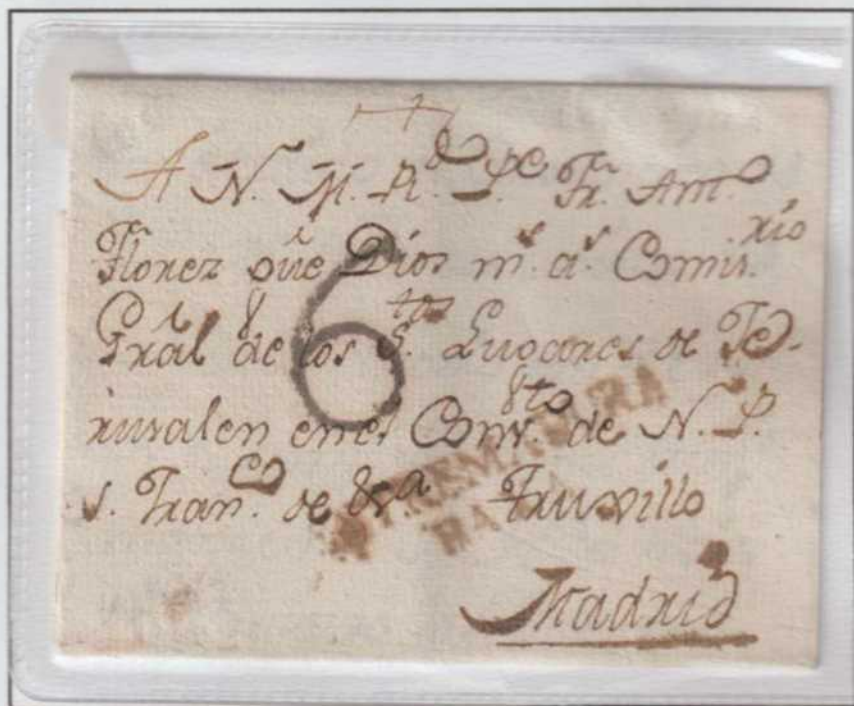 A N. M. R.º P.e Fr. Ant.º
Florez que Dios m.s a.s Comis.rio
Gral de los S.tos Lugares de Je-
rusalen en el Conv.to de N. P.
S. Fran.co de esa Truxillo
6
EXTREMADURA
BAXA
Madrid